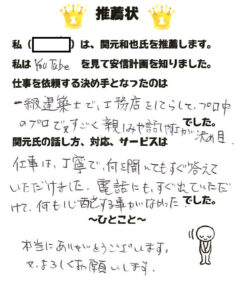 推薦状
私（　　　）は、関元和也氏を推薦します。
私は YouTube を見て安信計画を知りました。
仕事を依頼する決め手となったのは
一級建築士で、工務店をしてらして、プロ中
のプロですごく親しみや話しやすが決め目 でした。
関元氏の話し方、対応、サービスは
仕事は、丁寧で、何を聞いてもすぐ答えて
いただけました。電話にも、すぐ出ていただ
けて、何も心配する事がなかった でした。
～ひとこと～
本当にありがとうございます。
又、よろしくお願いします。